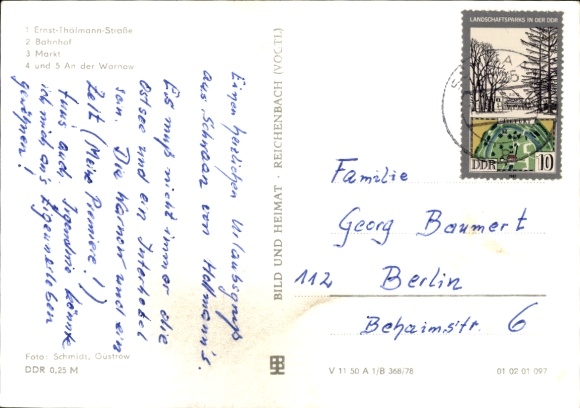 1 Ernst-Thälmann-Straße
2 Bahnhof
3 Markt
4 und 5 An der Warnow
Einen herzlichen Urlaubsgruß
aus Schwaan von Hoffmann's.
Es muß nicht immer die
Ostsee und ein Interhotel
sein. Die Warnow und ein
Zelt (Meine Premiere!)
tuns auch. Irgendwie könnte
ich mich an's
gewöhnen!
Foto: Schmidt, Güstrow
DDR 0,25 M
BILD UND HEIMAT · REICHENBACH (VOGTL)
LANDSCHAFTSPARKS IN DER DDR
DDR 10
Familie
Georg Baumert
112 Berlin
Behaimstr. 6
V 11 50 A 1/B 368/78
01 02 01 097